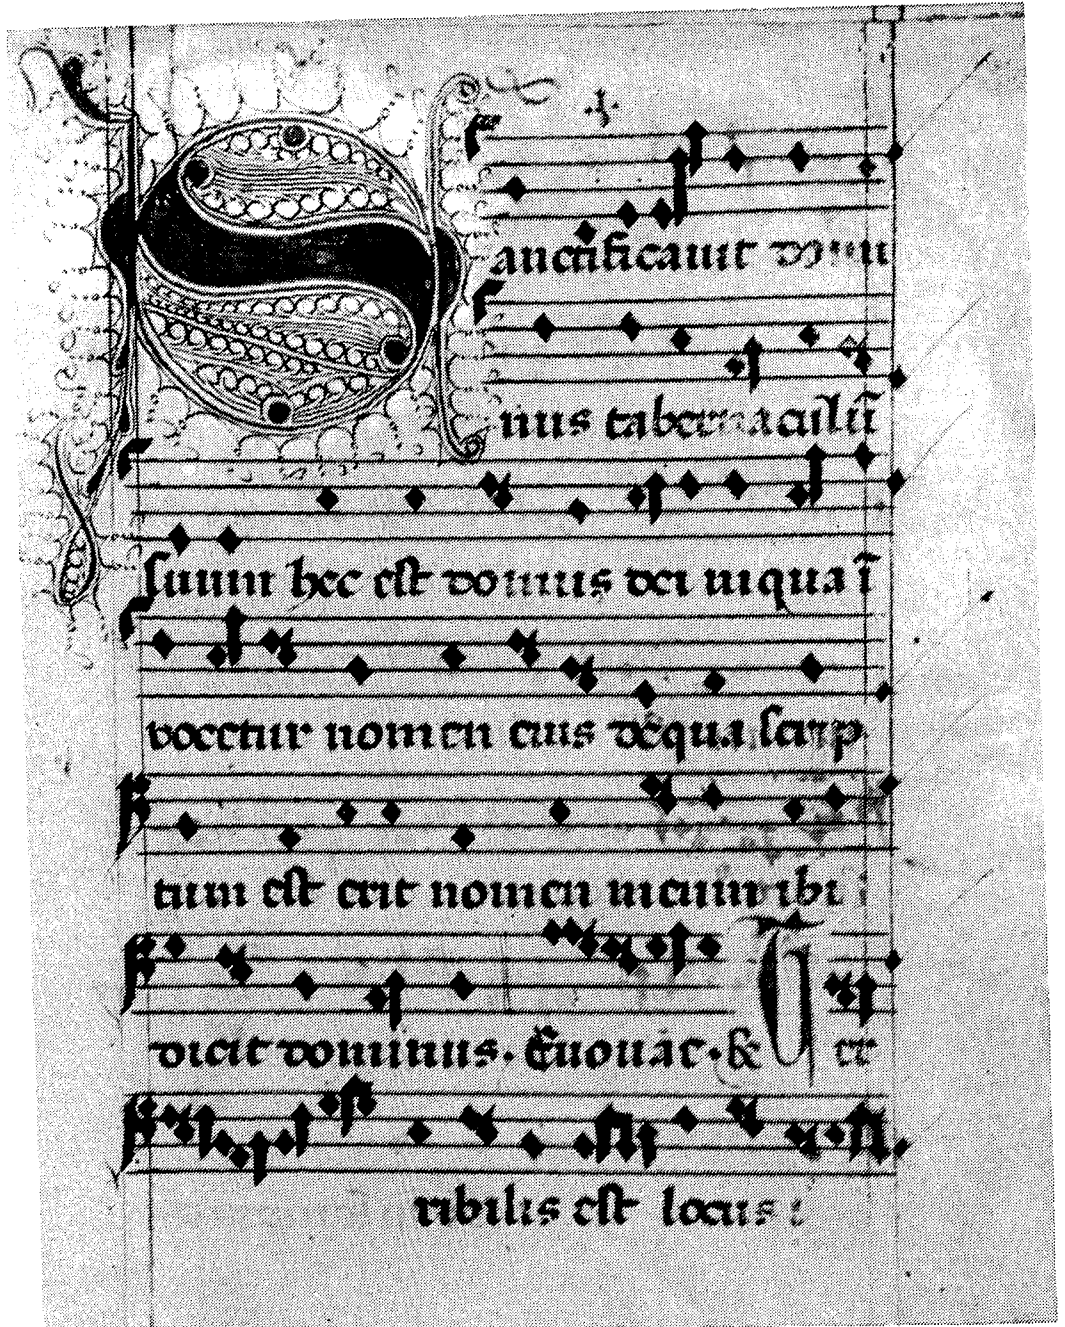 Sanctificauit domi
nus tabernaculũ
suum hec est domus dei in qua ĩ
vocetur nomen eius de qua scrip
tum est erit nomen meum ibi
dicit dominus. Euouae. & Ter
ribilis est locus i